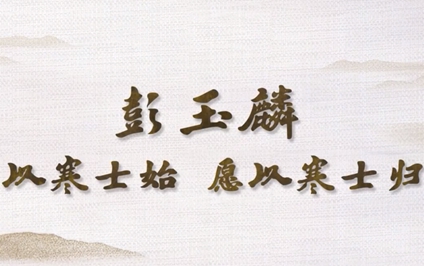 彭玉麟
以寒士始 愿以寒士归